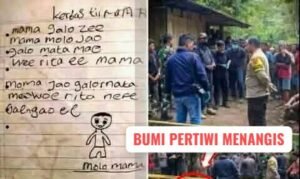 kertas tii
mama galo zee
mama molo Jao
galo mata mae
wee rita ee mama
moma Jao galo mata
mae woe rita ne'e
gae ngao ee
molo mama
BUMI PERTIWI MENANGIS